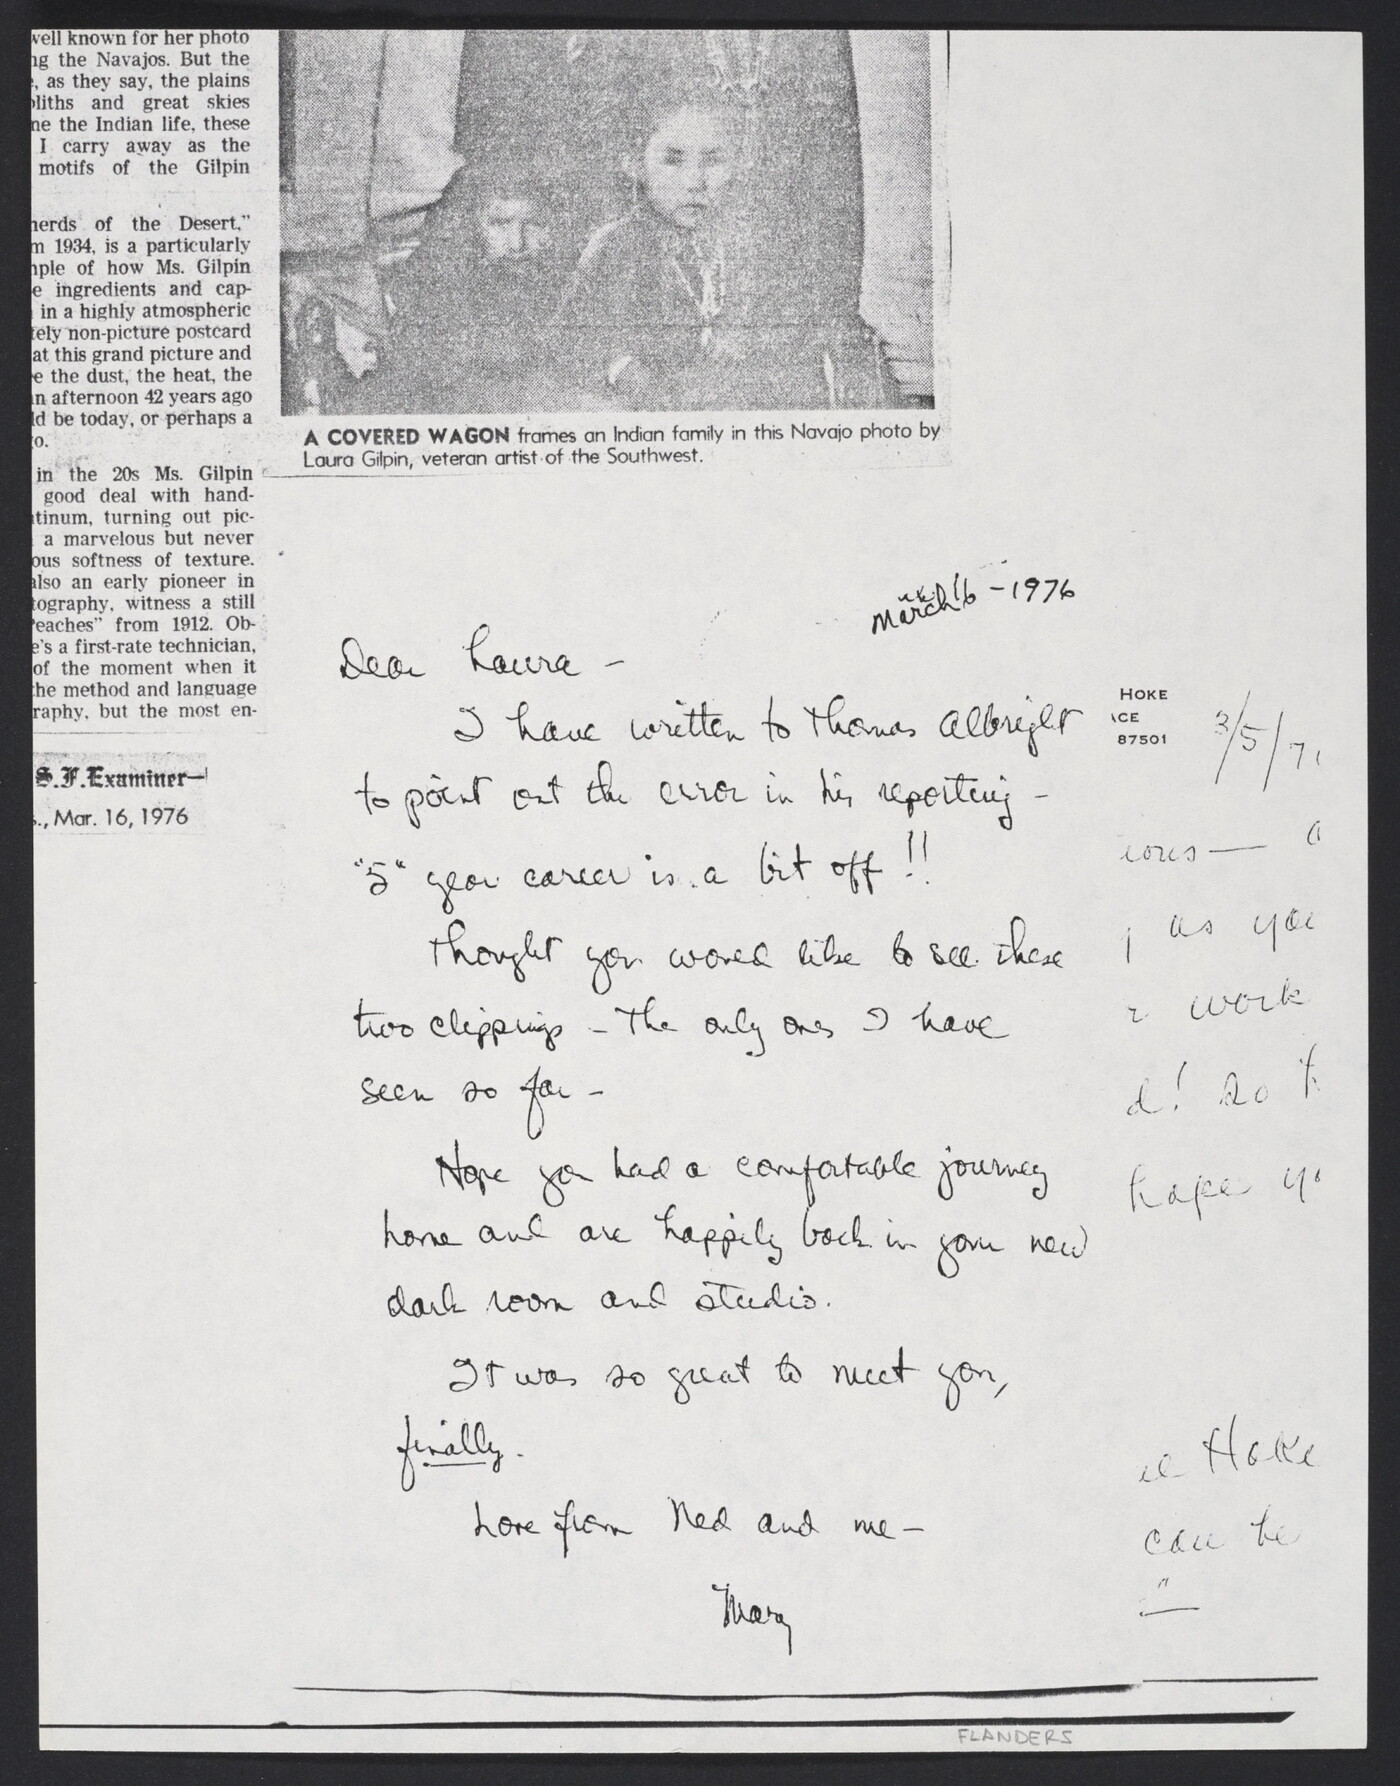 well known for her photo
ng the Navajos. But the
, as they say, the plains
oliths and great skies
ne the Indian life, these
I carry away as the
motifs of the Gilpin
herds of the Desert,"
m 1934, is a particularly
mple of how Ms. Gilpin
e ingredients and cap-
in a highly atmospheric
tely non-picture postcard
at this grand picture and
e the dust, the heat, the
n afternoon 42 years ago
ld be today, or perhaps a
o.
in the 20s Ms. Gilpin
good deal with hand-
atinum, turning out pic-
a marvelous but never
ous softness of texture.
also an early pioneer in
tography, witness a still
Peaches" from 1912. Ob-
e's a first-rate technician,
of the moment when it
the method and language
raphy, but the most en-
S.F. Examiner—
s., Mar. 16, 1976
A COVERED WAGON frames an Indian family in this Navajo photo by
Laura Gilpin, veteran artist of the Southwest.
March 16 - 1976
Dear Laura -
I have written to Thomas Albright
to point out the error in his reporting -
"5" year career is a bit off!!
Thought you would like to see these
two clippings - The only ones I have
seen so far -
Hope you had a comfortable journey
home and are happily back in your new
dark room and studio.
It was so great to meet you,
finally.
Love from Ned and me -
Mary
HOKE
ACE
87501
3/5/7
ious — a
as you
work
d! So
hope yo
Hoke
can be
FLANDERS